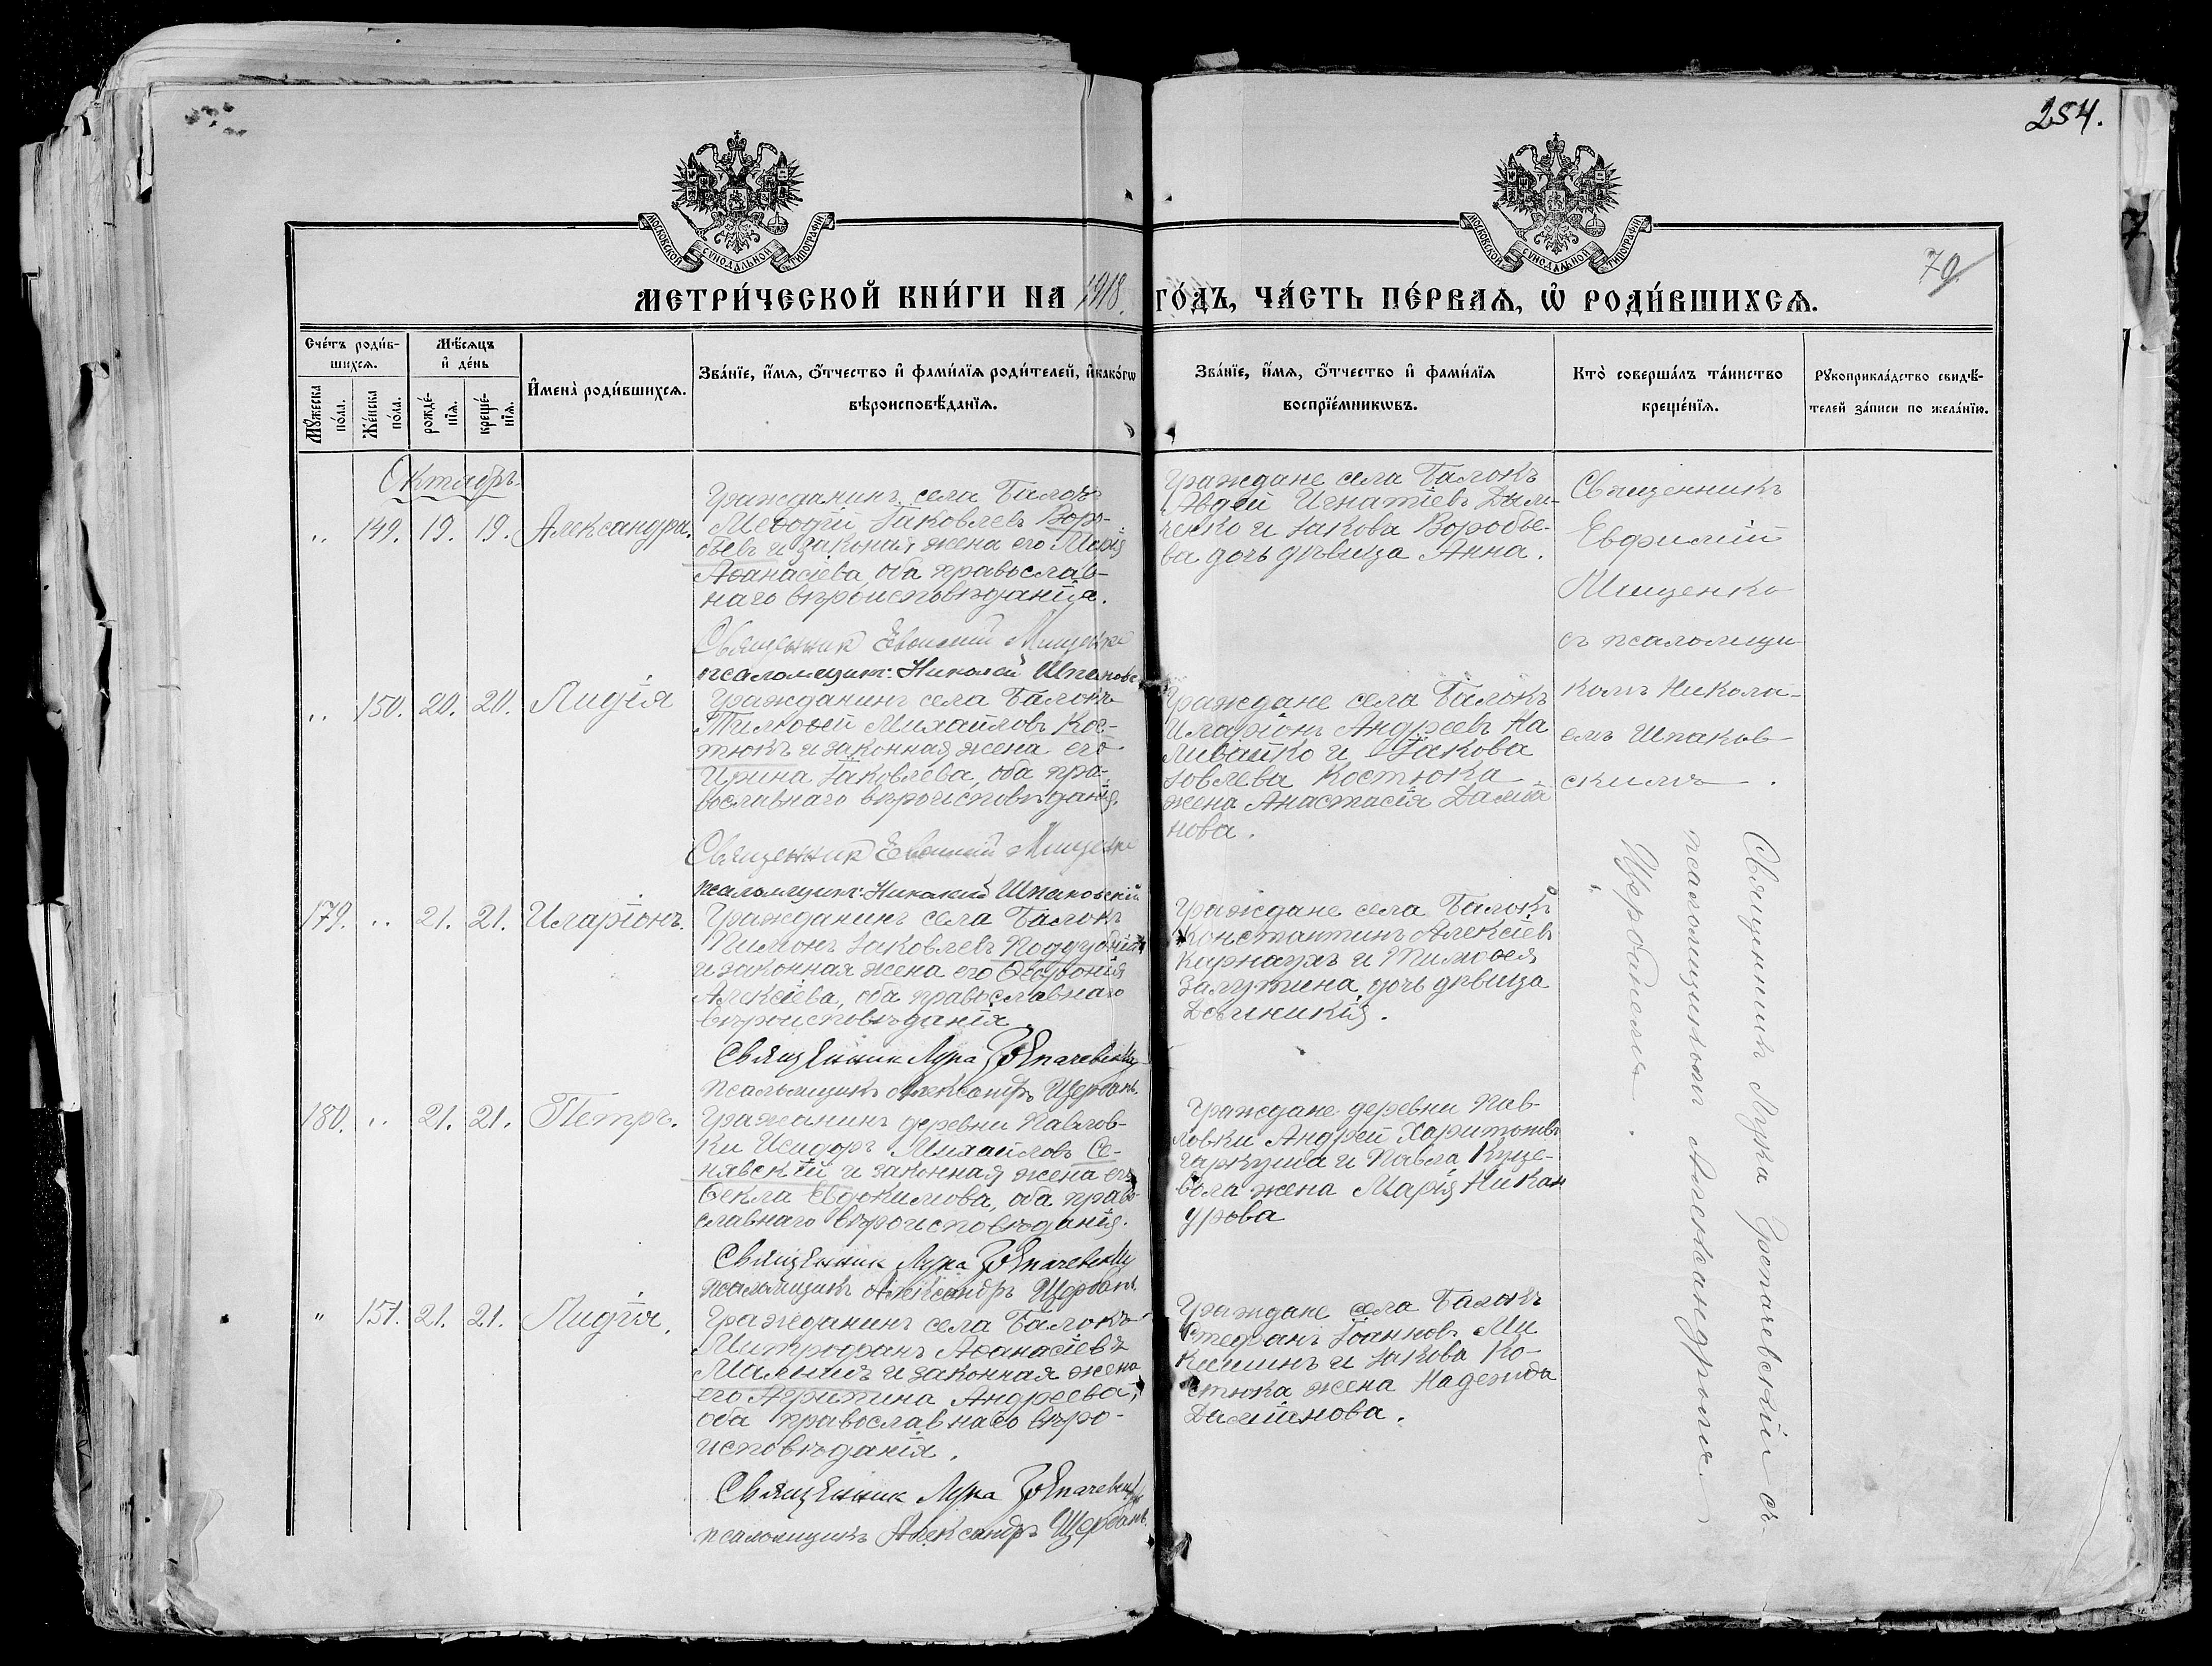 254.
МОСКОВСКОЙ СѴНОДАЛЬНОЙ ТИПОГРАФІИ
МОСКОВСКОЙ СѴНОДАЛЬНОЙ ТИПОГРАФІИ
70
МЕТРИ́ЧЕСКОЙ КНИ́ГИ НА 1918. ГО́ДЪ, ЧА́СТЬ ПЕ́РВАѦ, Ѽ РОДИ́ВШИХСѦ.
Сче́тъ роди́в-
шихсѧ.
Мꙋжеска по́ла.
Же́нска по́ла.
Мѣ́сѧцъ
и҆ де́нь
рожде́-
нїѧ.
креще́-
нїѧ.
И҆мена̀ роди́вшихсѧ.
Зва́нїе, и҆́мѧ, ѻ҆́тчество и҆ фами́лїѧ роди́телей, и҆ како́гѡ
вѣроисповѣ́данїѧ.
Зва́нїе, и҆́мѧ, ѻ҆́тчество и҆ фами́лїѧ
воспрїе́мникѡвъ.
Кто̀ соверша́лъ та́инство
креще́нїѧ.
Рꙋкоприкла́дство свидѣ́-
телей за́писи по жела́нїю.
Октябрь
„ 149. 19. 19. Александра.
Гражданинъ села Балокъ
Меѳодій Іаковлевъ Воро-
бьевъ и законая жена его Марія
Аѳанасіева, оба православ-
наго вѣроисповѣданія.
Священник Евѳимий Мищенко
псаломщикъ: Николай Шпаковс
Граждане села Балокъ
Авдей Игнатіевъ Дьом-
ченко и Іакова Воробье-
ва дочь дѣвица Анна.
Священникъ
Евфимій
Мищенко
съ псаломщи-
комъ Никола-
емъ Шпаков-
скимъ.
„ 150. 20. 20. Лидія
Гражданинъ села Балокъ
Тимоѳей Михайловъ Кос-
тюкъ и законная жена его
Ирина Іаковлева, оба пра-
вославнаго вѣроисповѣданія.
Священник Евѳимий Мищенко
псаломщикъ: Николай Шпаковскій
Граждане села Балокъ
Иларіонъ Андреевъ Ка
ливайко и Іакова
Іовлева Костюка
жена Анастасія Даміа
нова.
179. „ 21. 21. Иларіонъ.
Гражданинъ села Балокъ
Пименъ Іаковлевъ Поддубный
и законная жена его Ѳевронія
Алексіева, оба православнаго
вѣроисповѣданія
Священник Лука
псаломщикъ Александръ Щербань.
Граждане села Балокъ
Константинъ Алексіевъ
Карнаухъ и Тимоѳея
Залутина дочь дѣвица
Домникія.
Священникъ Лука Грепачевскій съ
псаломщикомъ Александромъ
Щербанемъ.
180. „ 21. 21. Петръ.
Гражанинъ деревни Павлов-
ки Исидоръ Михайловъ Се-
нявскій и законная жена его
Ѳекла Евдокимова, оба право-
славнаго вѣроисповѣданія.
Священник Лука
псаломщикъ Александръ Щербань.
Граждане деревни Пав-
ловки Андрей Харитоновъ
Гаркуша и Павла Куце-
вола жена Марія Никан
урова
„ 151. 21. 21. Лидія.
Гражданинъ села Балокъ
Митрофанъ Аѳанасіевъ
Малышъ и законная жена
его Агрипина Андреева,
оба православнаго вѣро-
исповѣданія.
Священник Лука
псаломщикъ Александръ Щербань.
Граждане села Балокъ
Стефанъ Іоанновъ Ми
кишинъ и Іакова Ко-
стюка жена Надежда
Даміанова.